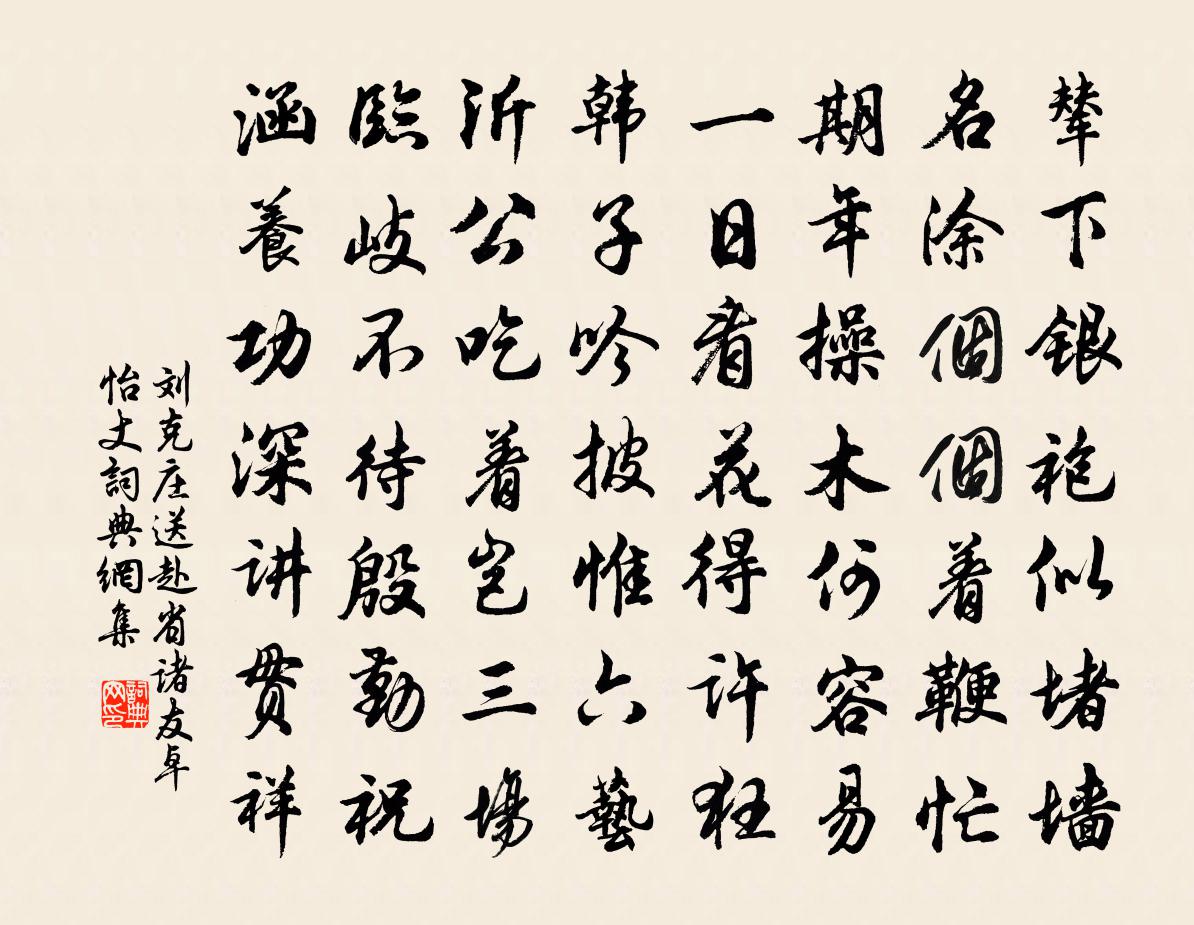 輦下銀袍似堵墙
名涂個個着鞭忙
期年操木何容易
一日看花得许狂
韩子吟披惟六藝
沂公吃着岂三場
臨歧不待殷勤祝
涵養功深讲贯祥
刘克庄送赴省诸友卓
怡文詞典網集
詞典网印